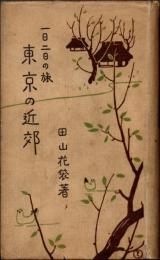 一日二日の旅
東京の近郊
田山花袋著